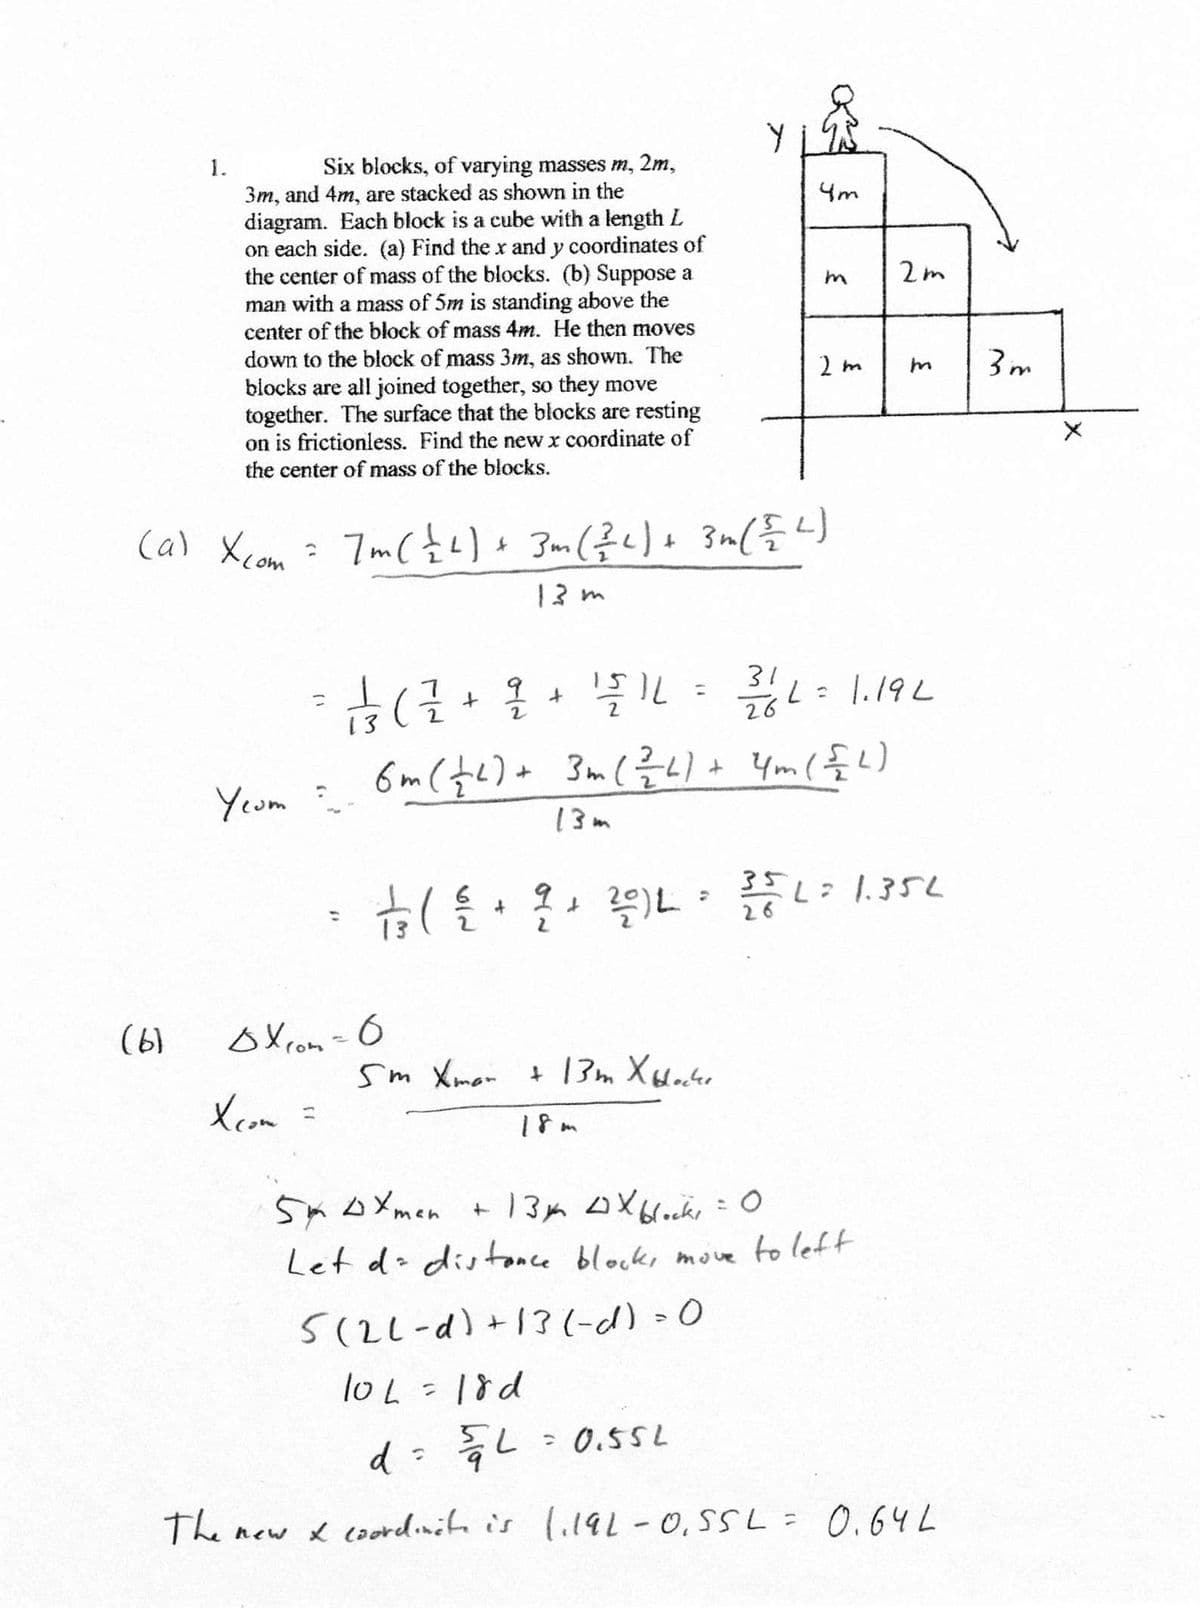 1. Six blocks, of varying masses m, 2m,
3m, and 4m, are stacked as shown in the
diagram. Each block is a cube with a length L
on each side. (a) Find the x and y coordinates of
the center of mass of the blocks. (b) Suppose a
man with a mass of 5m is standing above the
center of the block of mass 4m. He then moves
down to the block of mass 3m, as shown. The
blocks are all joined together, so they move
together. The surface that the blocks are resting
on is frictionless. Find the new x coordinate of
the center of mass of the blocks.
Y
4m
m 2m
2m m 3m
X
(a) Xcom = 7m(1/2 L) + 3m(3/2 L) + 3m(5/2 L)
13m
= 1/13 (7/2 + 9/2 + 15/2)L = 31/26 L = 1.19L
Ycom = 6m(1/2 L) + 3m(3/2 L) + 4m(5/2 L)
13m
= 1/13 (6/2 + 9/2 + 20/2)L = 35/26 L = 1.35L
(b) ΔXcom = 0
Xcom = 5m Xman + 13m Xblocks
18m
5m ΔXman + 13m ΔXblocks = 0
Let d = distance blocks move to left
5(2L-d) + 13(-d) = 0
10L = 18d
d = 5/9 L = 0.55L
The new x coordinate is 1.19L - 0.55L = 0.64L